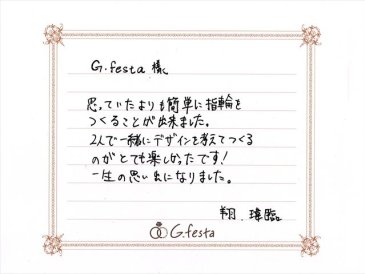 G.festa 様
思っていたよりも簡単に指輪を
つくることが出来ました。
2人で一緒にデザインを考えてつくる
のがとても楽しかったです!
一生の思い出になりました。
翔.
G.festa